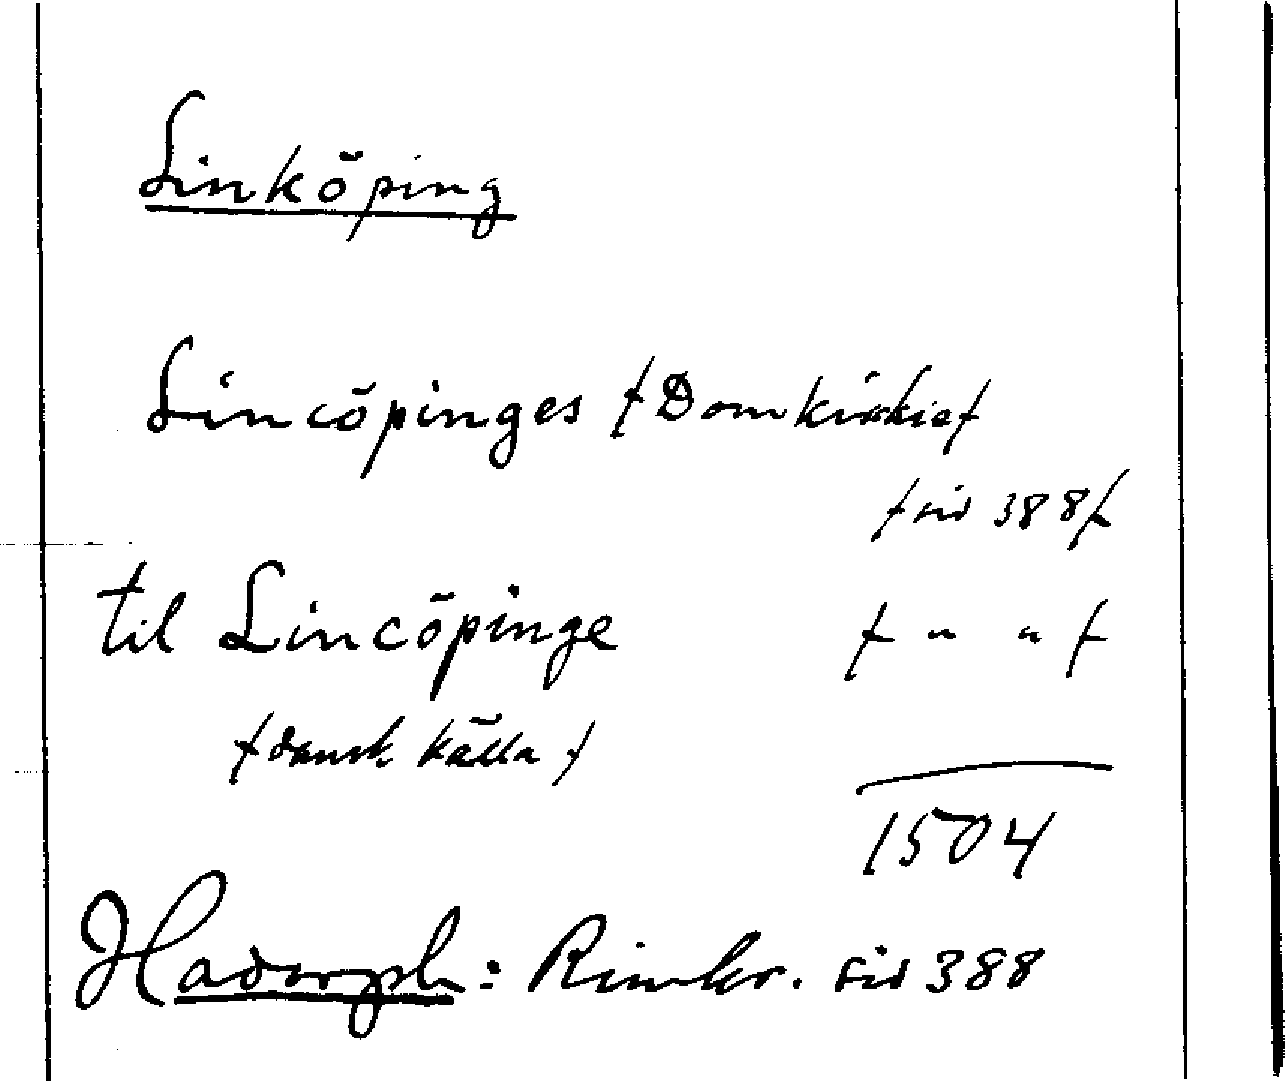 Linköping
Lincöpinges /Domkirkie/
/sid 388/
til Lincöpinge / " " /
/dansk källa/
1504
Hadorph: Rimkr. sid 388